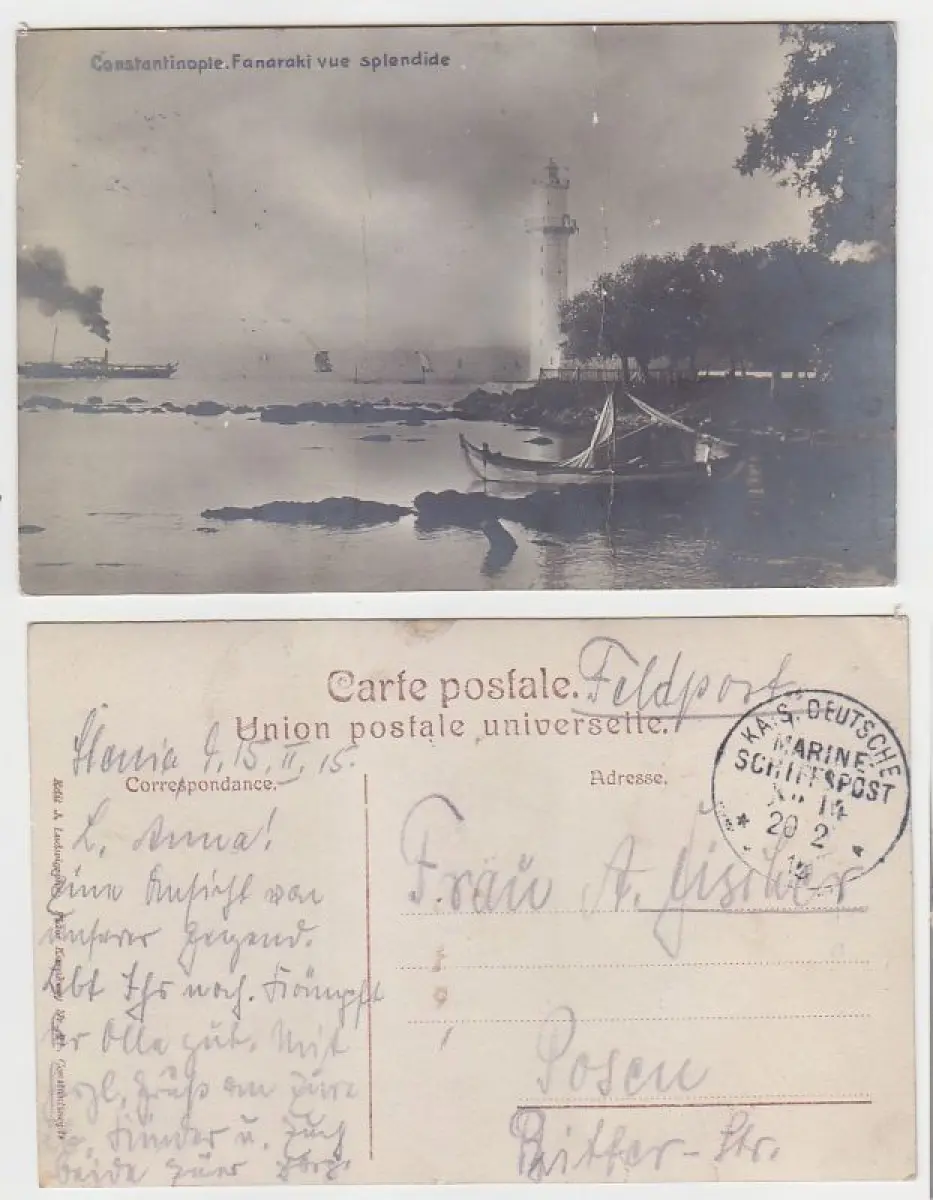 Constantinople. Fanaraki vue splendide
Carte postale.
Feldpost
Union postale universelle.
15. II. 15.
Correspondance.
Adresse.
KAIS. DEUTSCHE
MARINE-
SCHIFFSPOST
20 2
L. Anna!
Eine Ansicht von
unserer Gegend.
Lebt Ihr noch. Kämpft
Olle gut. Mit
herzl. Gruß an Eure
Kinder u. Euch
beide Euer
Frau A. Fischer
Posen
Ritter-Str.